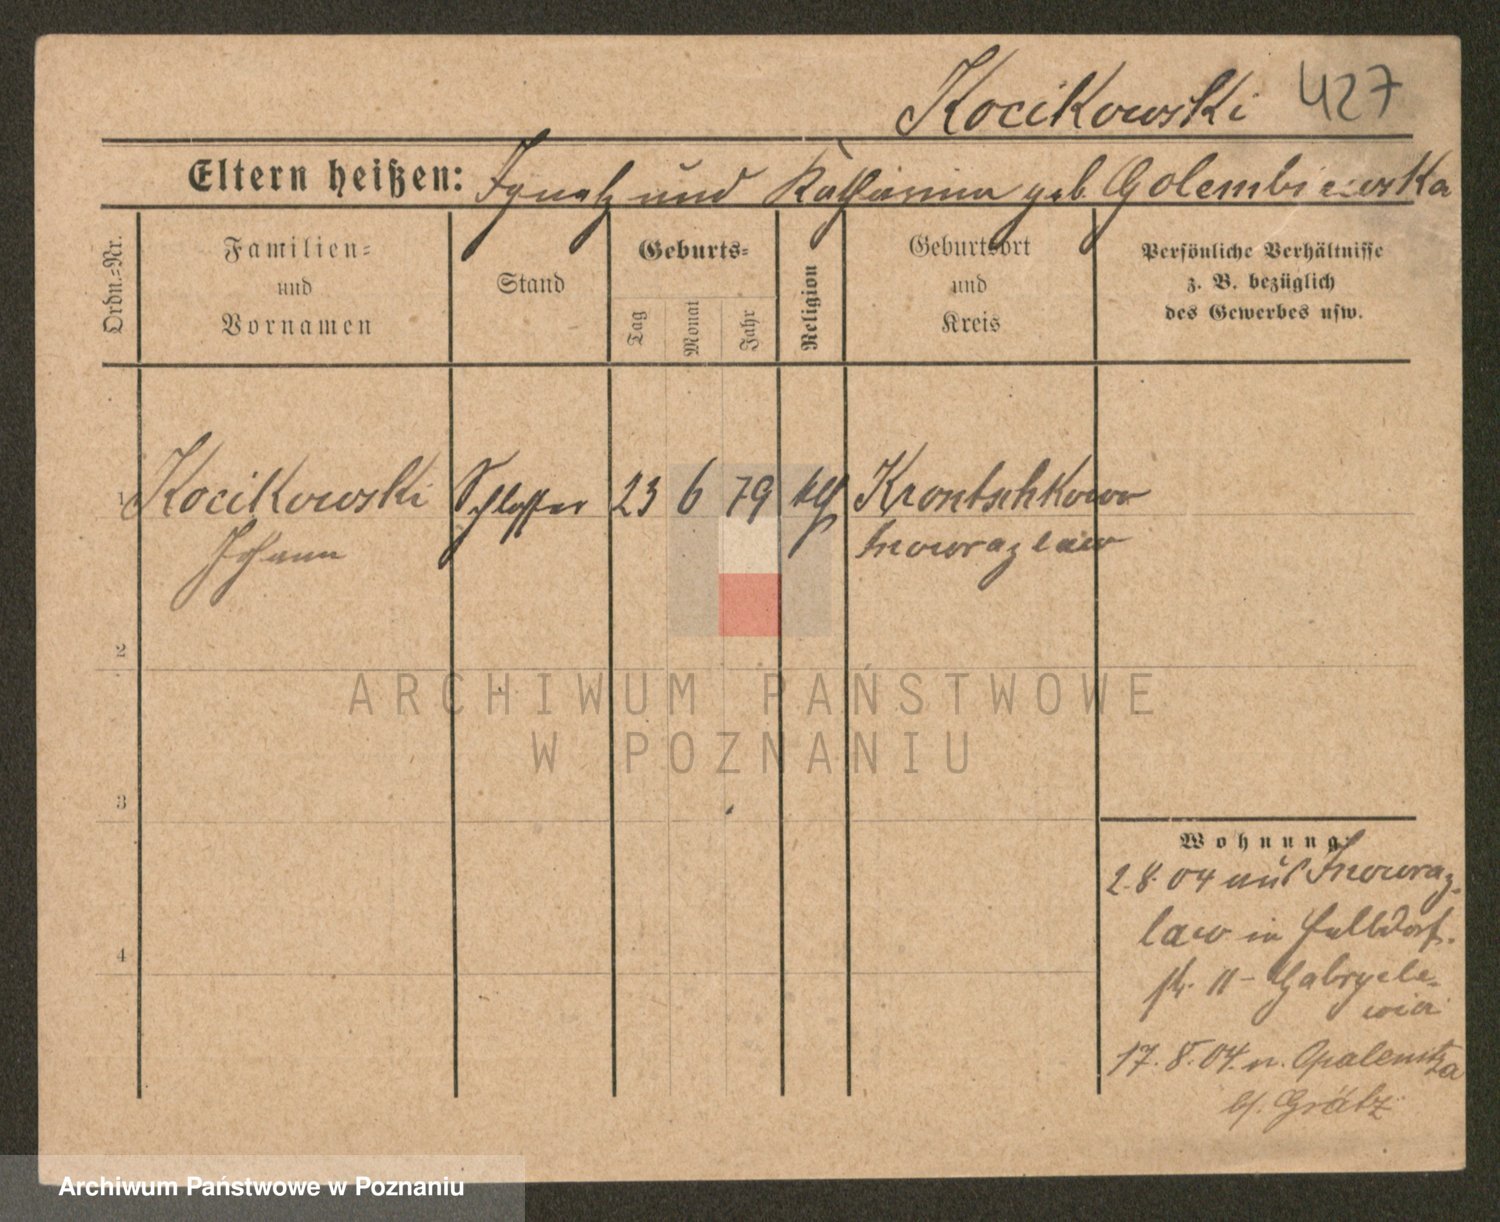 Kocikowski 427
Eltern heißen: Ignatz und Katharina geb. Golembiewska
Ordn.-Nr.
Familien-
und
Vornamen
Stand
Geburts-
Tag
Monat
Jahr
Religion
Geburtsort
und
Kreis
Persönliche Verhältnisse
z. B. bezüglich
des Gewerbes usw.
1 Kocikowski Schlosser 23 6 79 kth Krontschkowo
Johann Inowrazlaw
2
3
4
ARCHIWUM PAŃSTWOWE
W POZNANIU
Wohnung:
2.8.04 aus Inowraz-
law in Halbdorf-
str. 11 - Gabryele-
wicz
17.8.04. n. Opalenitza
b/. Grätz
Archiwum Państwowe w Poznaniu